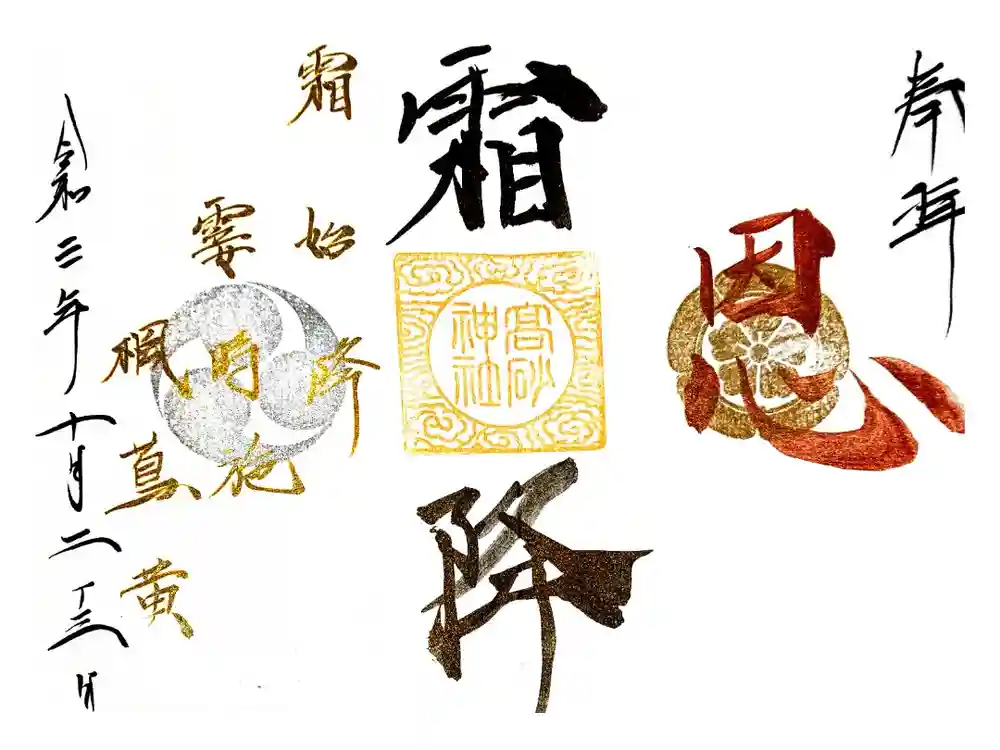 奉拝
恩
霜降
高砂
神社
霜始降
霎時施
楓蔦黄
令和二年十月二十三日